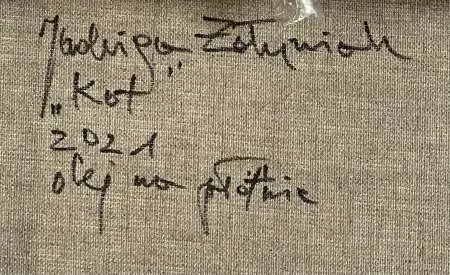 Jadwiga Żołyniak
„Kot”
2021
olej na płótnie